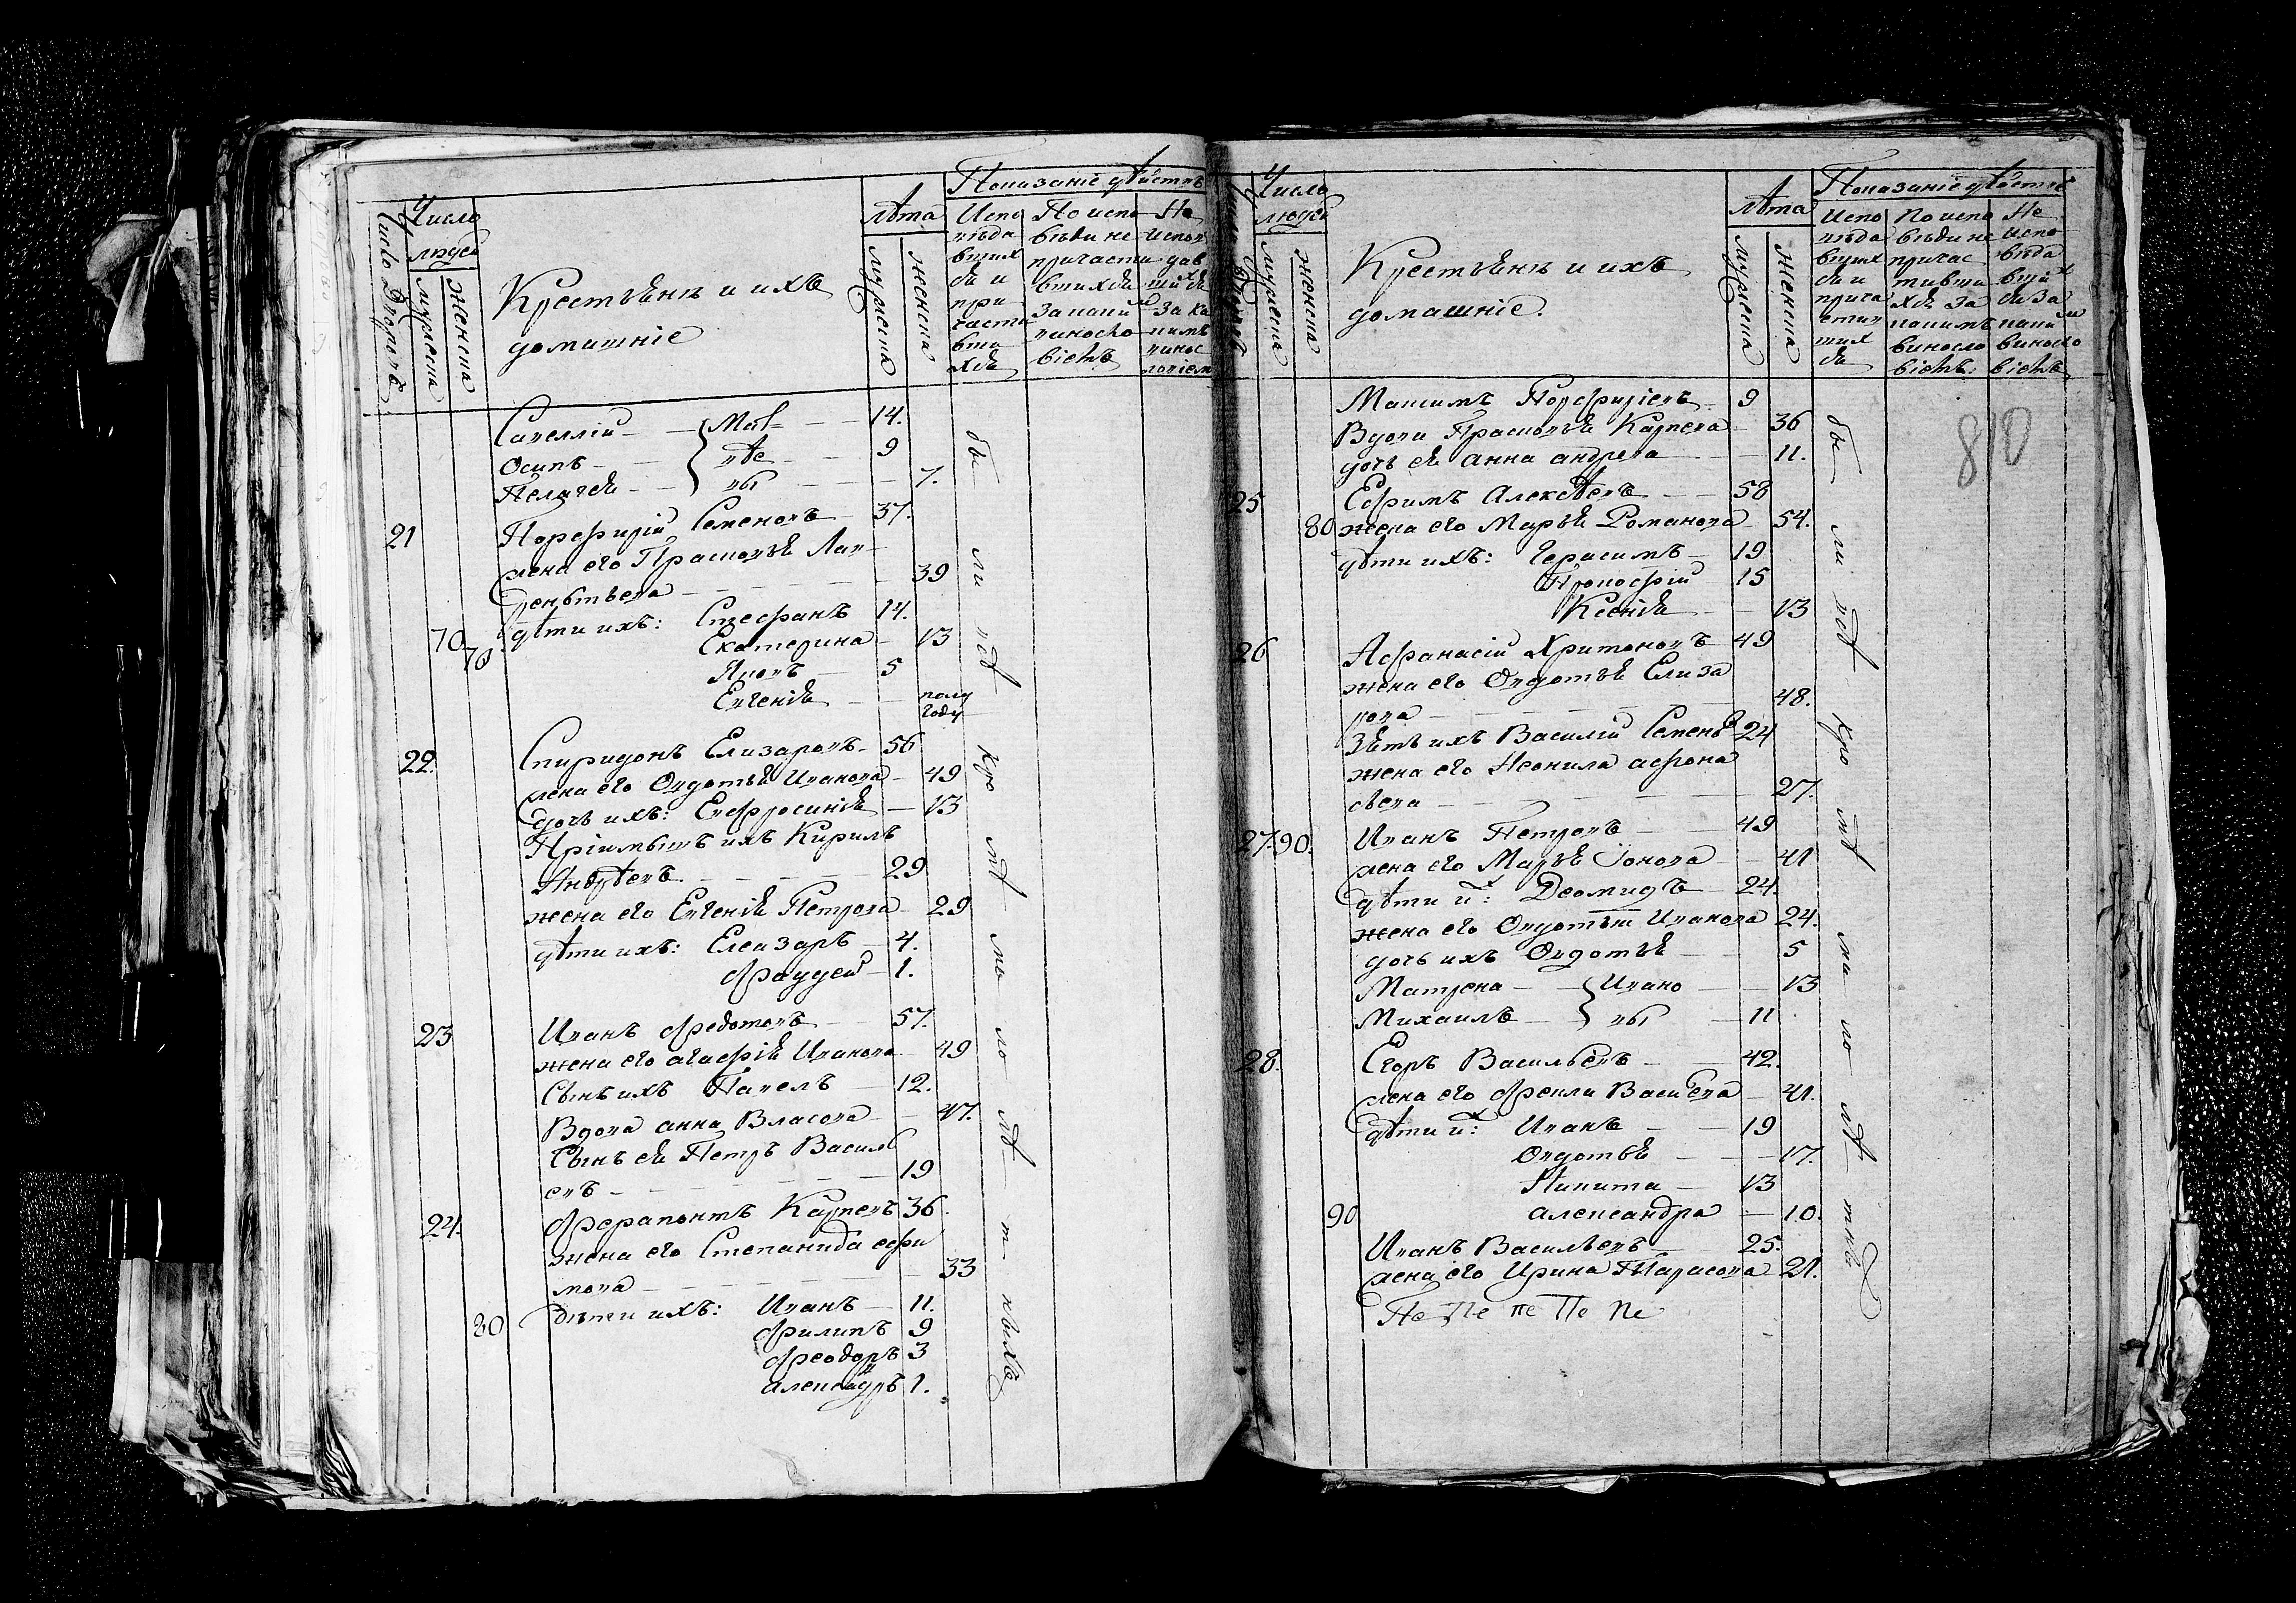 Число Дворовъ
Число людей
мужеска
женска
Крестьянѣ и ихъ
домашніе
лѣта
мужеска
женска
Показаніе дѣйствъ
Испо
вѣда
вших
ся и
при
части
вши
хся
По испо
вѣди не
причасти
вшихся
за каки
виносло
віемъ
Не
испов
дав
шихся
за ка
кимъ
винос
ловіем
Савеллій — Мат 14.
Осипъ — вѣе 9
Пелагея — вы 7.
21 Порфирій Семеновъ 37.
жена его Прасковья Лав
реньтьева 39
70 дѣти ихъ: Стефанъ 14.
70 Екатерина 13
Яковъ 5
Евгенія полу
году
22. Спиридонъ Елизаровъ 56
жена его Овдотья Иванова 49
дочь ихъ: Евфросинія 13
Пріимышъ ихъ Кирилъ
Андрѣевъ 29
жена его Евгенія Петрова 29
дѣти ихъ: Елеазаръ 4.
Фаддей 1.
23 Иванъ Федотовъ 57.
жена его агафія Иванова 49
Сынъ ихъ Павелъ 12.
Вдова анна Власова 47.
Сынъ ея Петръ Василь
евъ 19
24. Ферапонтъ Карпевъ 36
жена его Степанида ефи
мова 33
дѣти ихъ: Иванъ 11.
80 Филипъ 9
Феодоръ 3
александръ 1.
бы ли всѣ кро мѣ ма ло лѣ т ныхъ
Число Дворовъ
Число
людей
мужеска
женска
Крестьянѣ и ихъ
домашніе.
лѣта
мужеска
женска
Показаніе дѣйствъ
Испо
вѣда
вших
ся и
прича
стив
ших
ся
По испо
вѣди не
причас
тивши
хся за
какимъ
виносло
віемъ.
Не
испо
вѣда
вших
ся за
каки
виносло
віемъ
Максимъ Порфиріевъ 9
Вдова Прасковья Карпева 36
дочь ея анна андрева 11.
810
25 Ефимъ Алексѣевъ 58
80 жена его Марья Романова 54.
дѣти ихъ: Герасимъ 19
Прокофій 15
Ксенія 13
26 Афанасій Харитоновъ 49
жена его Овдотья Елиза
рова 48.
Зять ихъ Василій Семенов 24
жена его Неонила афона
сьева 27.
27. 90. Иванъ Петровъ 49
жена его Марья Іонова 41
дѣти их: Деомидъ 24.
жена его Овдотья Иванова 24.
дочь ихъ Овдотья 5
Матрена — Ивано 13
Михаилъ — вы 11
28. Егоръ Васильевъ 42.
жена его Фекла Васильева 41.
дѣти их: Иванъ 19
Овдотья 17.
Никита 13
90 александра 10.
Иванъ Васильевъ 25.
жена его Ирина Тарасова 21.
Пе Пе пе Пе Пе
бы ли всѣ кро мѣ ма ло лѣ тнихъ